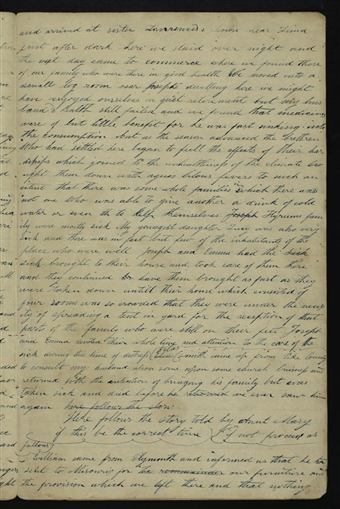 and arrived at sister Lawrences house near Lima
just after dark here we staid over night and
the next day came to commerce where we found those
of our family who were there in good health We moved into a
small log room near Joseph's dwelling here we might
have enjoyed ourselves in quiet retirement but my hus
band's health still failed and we found that medicine
were of but little benefit for he was past
the consumption but as the season advanced the brethren
who had settled here began to feel the effects of their har
dships which joined to the unhealthiness of the climate bro
ught them down with agues bilous fevers to such an
extent that there was some whole families in which there was
not one who was able to give another a drink of cold
water or even to help themselves Joseph Hyrums fami
ly were mostly sick My youngest daughter Lucy was also very
sick and there was in fact but few of the inhabitants of the
place who were well Joseph and Emma had the sick
brought to their house and took care of them there
and they continued to have them brought as fast as they
were taken down until their house which consisted of
four rooms was so crowded that they were under the neces
ity of spreading a tent in yard for the reception of that
part of the family who were still on their feet Joseph
and Emma devoted their whole time and attention to the care of the
sick during this time of distress Silas Smith came up from Pike County
to consult my husband upon some church business and
returned with the intention of bringing his family but was
taken sick and died before he ever saw him
again here follows the story
Here follows the story told by aunt Mary
if this be the correct time if not proceed as
follows
William came from Plymouth and informed us that he
sent to Missouri for the our furniture and
the provision which we left there and that nothing